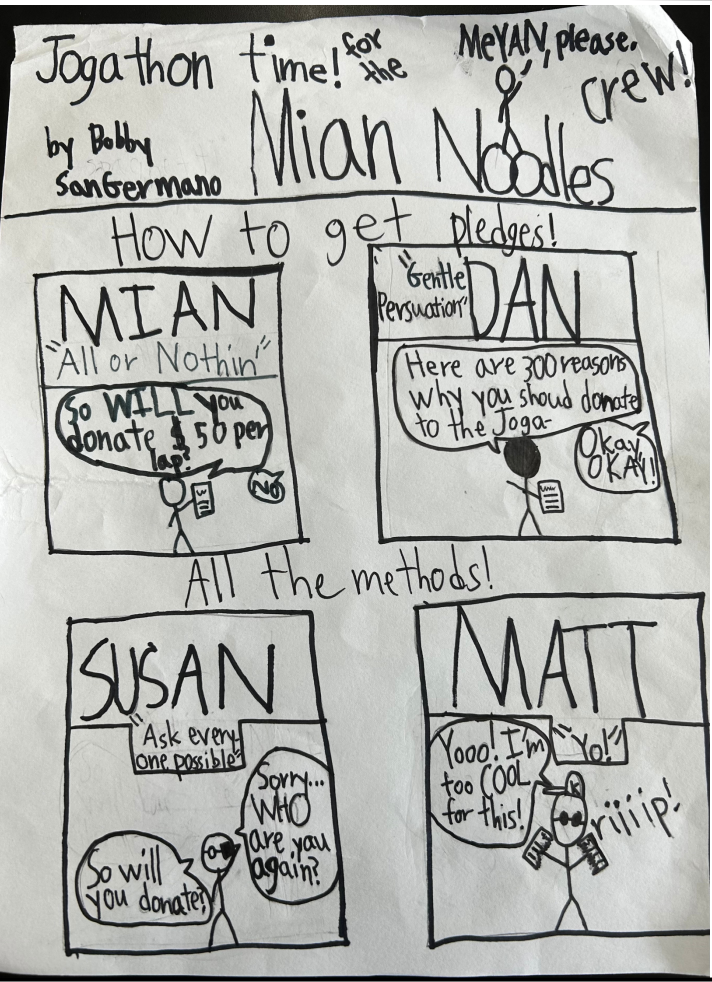 Jogathon time! for the
MeYAN, please.
crew!
by Bobby
SanGermano
Mian Noodles
How to get pledges!
MIAN
"All or Nothin"
So WILL you
donate $50 per
lap?
No
"Gentle
Persuation"
DAN
Here are 300 reasons
why you shoud donate
to the Joga-
Okay,
OKAY!
All the methods!
SUSAN
"Ask every
one possible"
So will
you donate?
Sorry...
WHO
are you
again?
MATT
"Yo!"
Yooo! I'm
too COOL
for this!
K
riiiip!